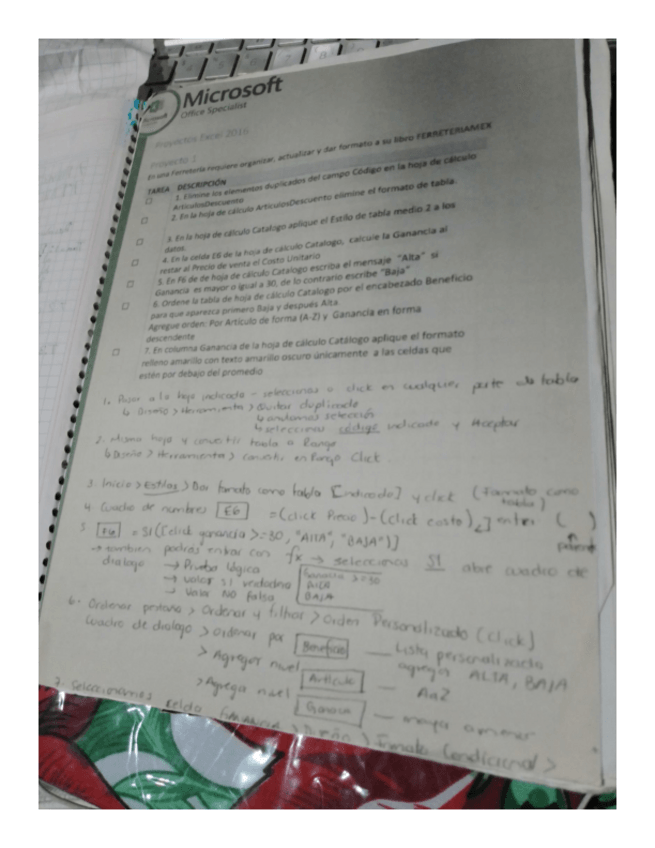 Microsoft
Office Specialist
Proyectos Excel 2016
Proyecto 1
En una Ferretería requiere organizar, actualizar y dar formato a su libro FERRETERIAMEX
TAREA DESCRIPCIÓN
1. Elimine los elementos duplicados del campo Código en la hoja de cálculo
ArticulosDescuento
2. En la hoja de cálculo ArticulosDescuento elimine el formato de tabla.
3. En la hoja de cálculo Catalogo aplique el Estilo de tabla medio 2 a los
datos.
4. En la celda E6 de la hoja de cálculo Catalogo, calcule la Ganancia al
restar al Precio de venta el Costo Unitario
5. En F6 de de hoja de cálculo Catalogo escriba el mensaje "Alta" si
Ganancia es mayor o igual a 30, de lo contrario escribe "Baja"
6. Ordene la tabla de hoja de cálculo Catalogo por el encabezado Beneficio
para que aparezca primero Baja y después Alta
Agregue orden: Por Artículo de forma (A-Z) y Ganancia en forma
descendente
7. En columna Ganancia de la hoja de cálculo Catálogo aplique el formato
relleno amarillo con texto amarillo oscuro únicamente a las celdas que
estén por debajo del promedio
1. a la hoja indicada - seleccionas o click en cualquier parte de tabla
Diseño > Herramienta > Quitar duplicado
seleccion
seleccionas código indicado y Aceptar
2. Misma hoja y convertir tabla a Rango
Diseño > Herramienta > convertir en Rango Click.
3. Inicio > Estilos > Dar formato como tabla [Indicado] y click (Formato como
tabla)
4. Cuadro de nombres E6 =(click Precio)-(click costo) enter ( )
5. F6 = SI([click ganancia >=30, "AlTA", "BAJA")]
→ tambien podrás entrar con fx → seleccionas SI abre cuadro de
dialogo → Prueba lógica Ganancia >=30
→ valor si verdadero AlTA
→ Valor NO falsa BAJA
6. Ordenar pestaña > Ordenar y filtrar > Orden Personalizado (click)
Cuadro de dialogo > ordenar por Beneficio — Lista personalizada
agregar ALTA, BAJA
> Agregar nivel Artículo — AaZ
> Agrega nivel Ganancia — mayor a menor
7. Seleccionamos celda Ganancia > > Formato Condicional >